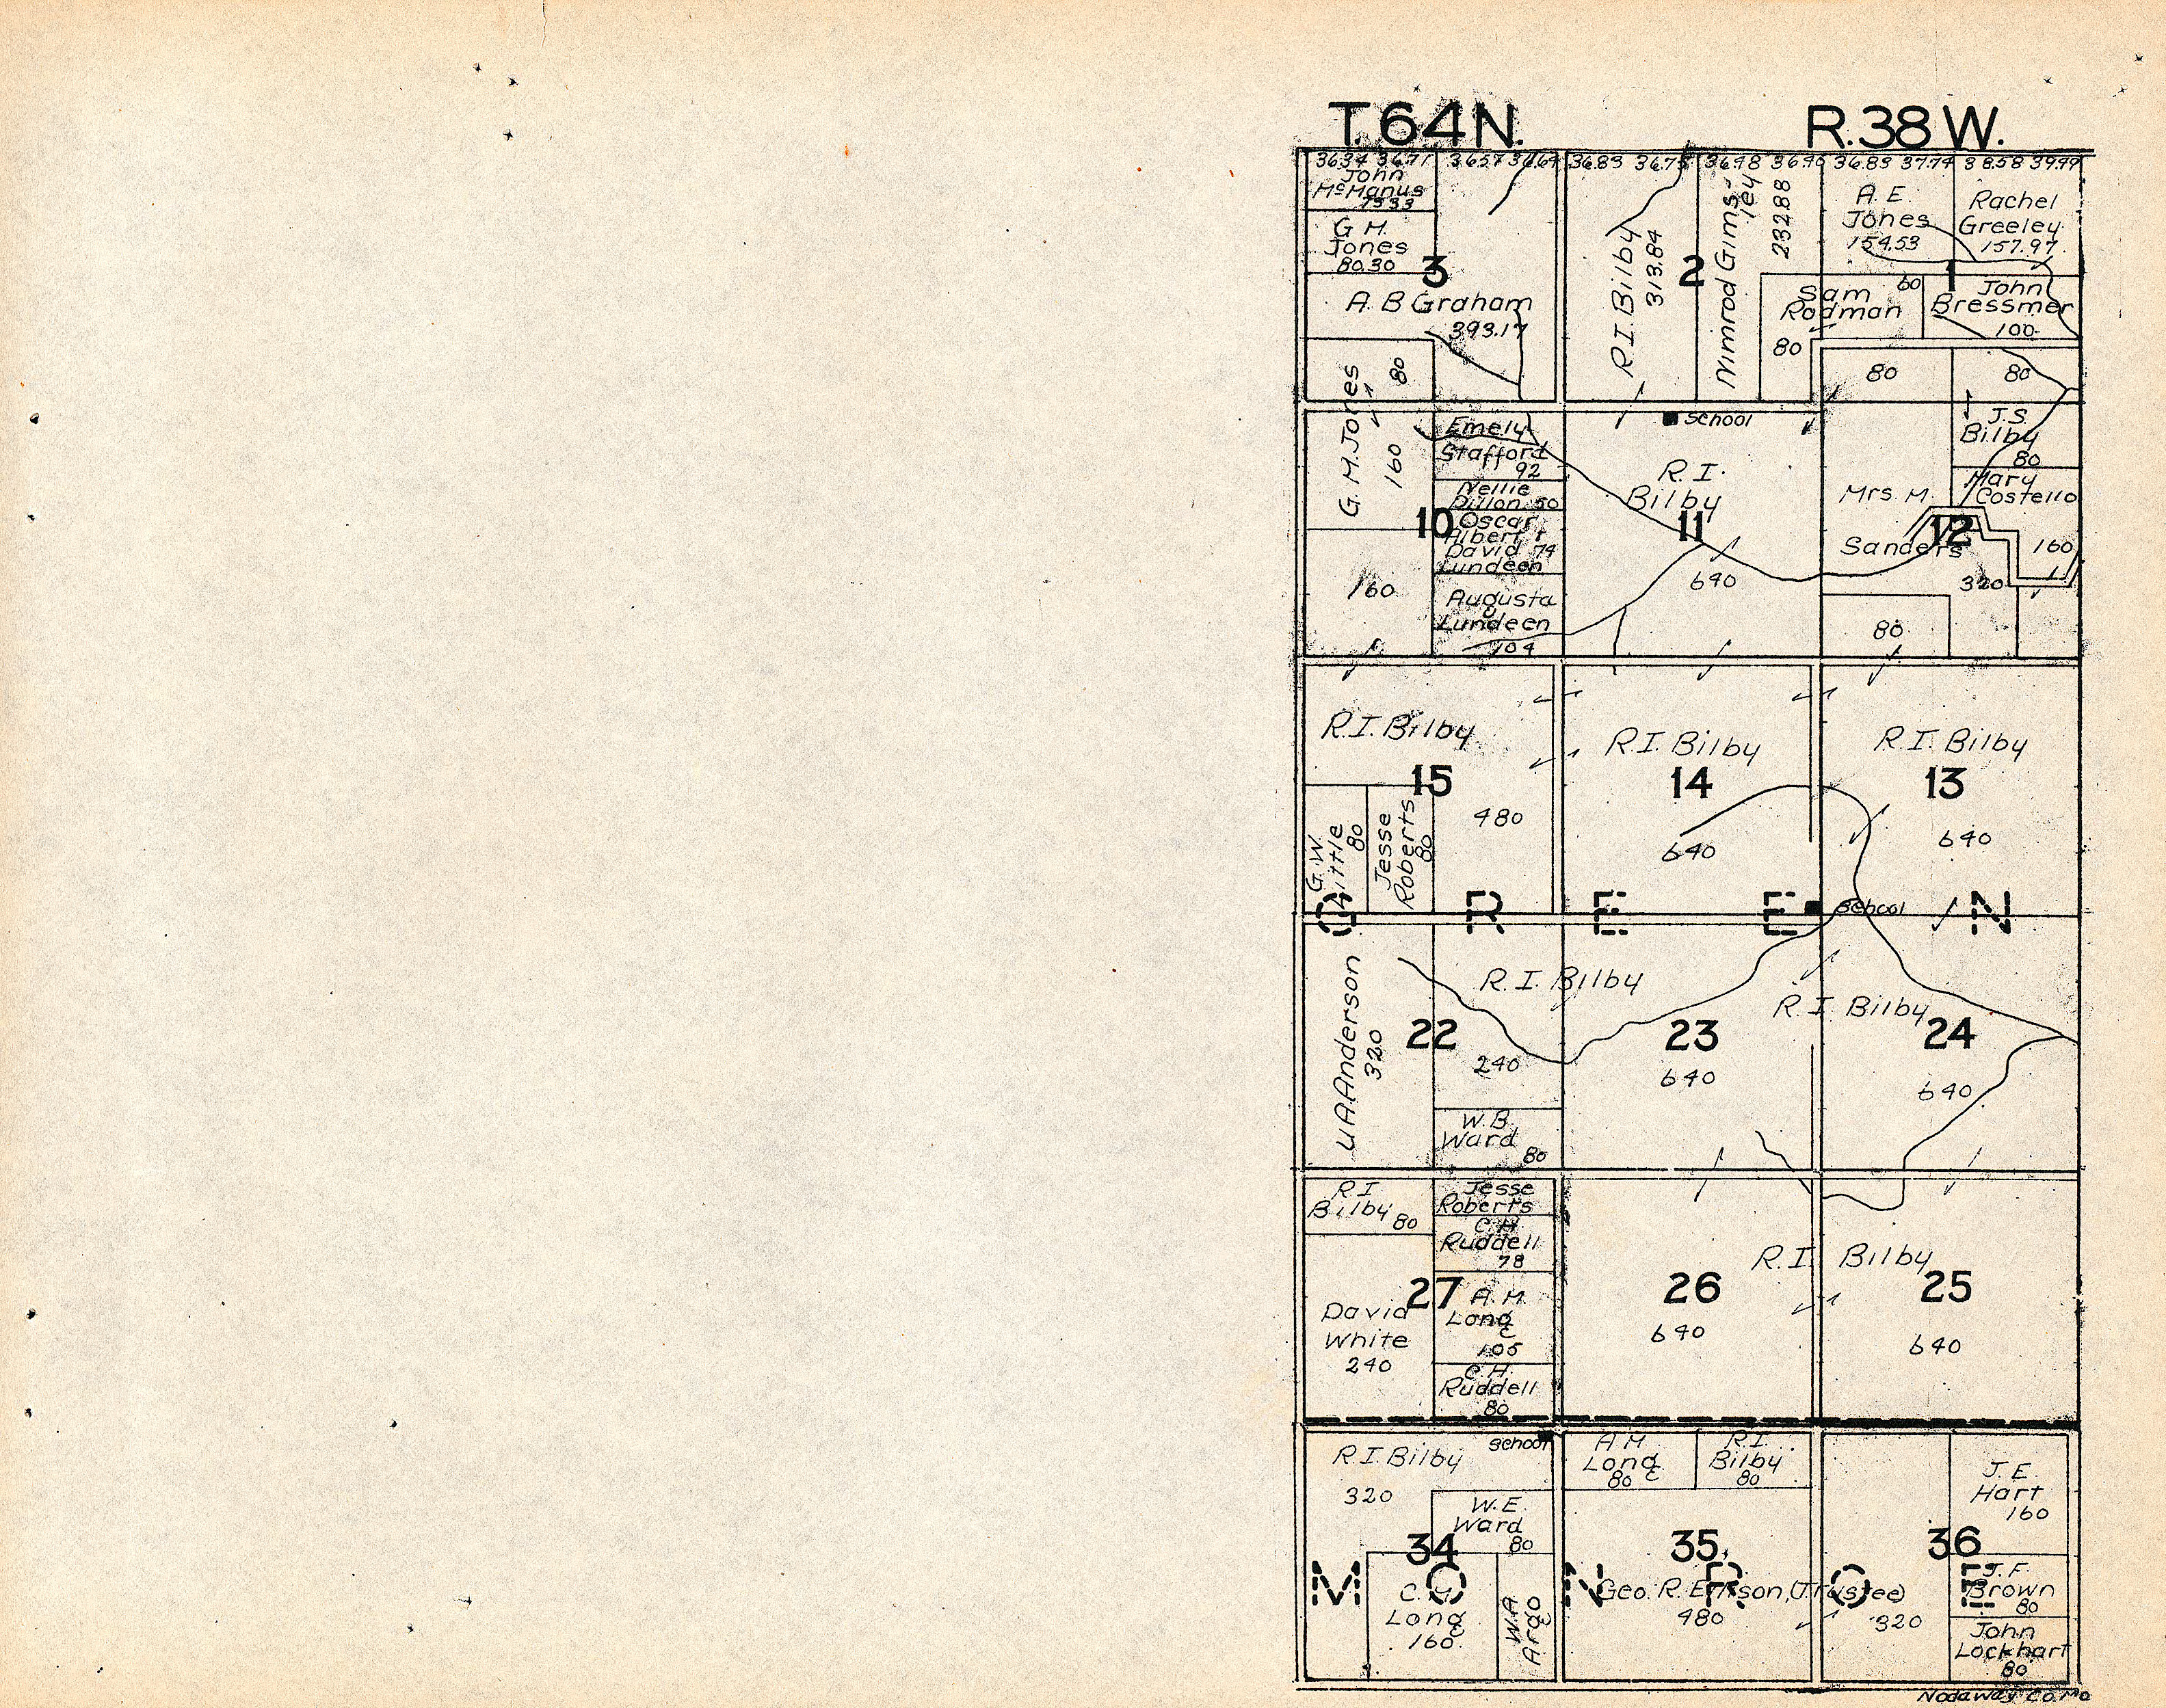 T. 64 N. R. 38 W.
36.34 36.71 36.57 36.64 36.83 36.75 36.48 36.40 36.83 37.74 38.58 39.49
John
McManus
73 33
G M.
Jones
80.30
3
A. B Graham
393.17
80
R. I. Bilby
313.84
2
Nimrod Gims-
ley
232.88
A. E.
Jones
154.53
Rachel
Greeley
157.97
1
Sam 60
Rodman
80
John
Bressmer
100
80
80
G. M. Jones
160
10
160
Emely
Stafford
92
Nellie
Dillon 50
Oscar
Albert &
David 74
Lundeen
Augusta
Lundeen
104
School
R. I.
Bilby
11
640
J. S.
Bilby
80
Mary
Costello
160
Mrs. M.
Sanders
12
320
80
R. I. Bilby
15
480
G. W.
Little
80
Jesse
Roberts
80
R. I. Bilby
14
640
R. I. Bilby
13
640
G R E E N
School
U A Anderson
320
22
R. I. Bilby
240
W. B.
Ward
80
23
640
R. I. Bilby
24
640
R. I
Bilby 80
Jesse
Roberts
C. H.
Ruddell
78
27
David
White
240
A. M.
Long
105
C. H.
Ruddell
80
R. I. Bilby
26
640
25
640
R. I. Bilby
320
School
W. E.
Ward
80
34
C. M.
Long
160
W. A.
Argo
A M
Long
80
R. I.
Bilby
80
35
(Trustee)
480
36
320
J. E.
Hart
160
J. F.
Brown
80
John
Lockhart
80
M O N R O E
Nodaway Co. Mo